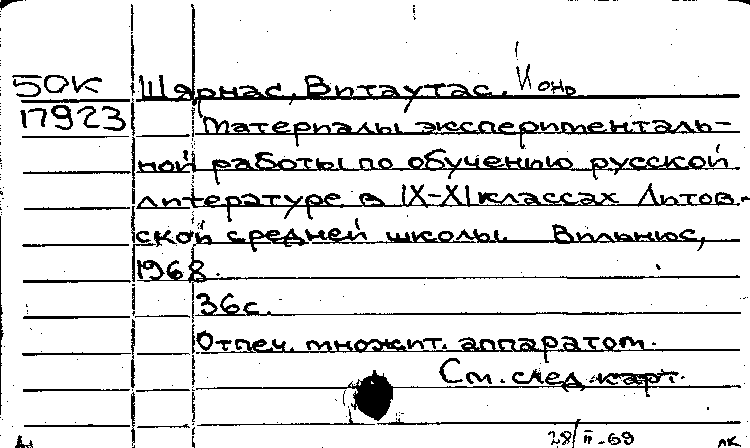 50К
17923
Шярнас, Витаутас, Ионо
Материалы эксперименталь-
ной работы по обучению русской
литературе в IX-XI классах Литов-
ской средней школы. Вильнюс,
1968.
36с.
Отпеч. множит. аппаратом.
См. след. карт.
28/II-69